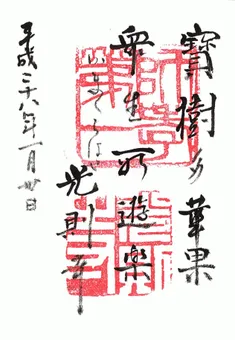 寶樹多華果
衆生所遊樂
師孝第一
光則寺
平成二十八年一月卅日